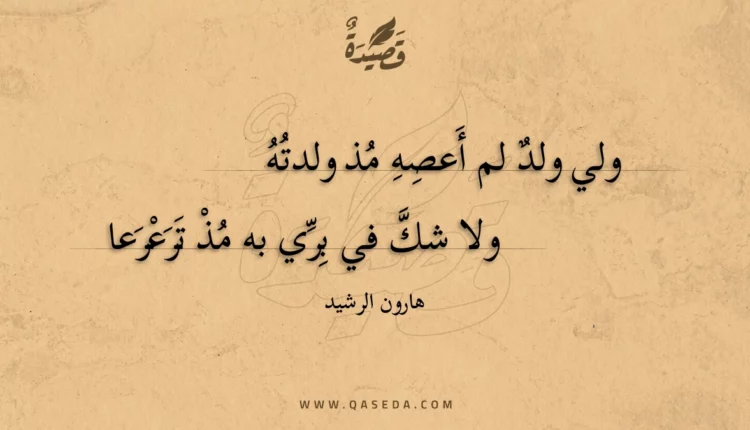 قَصِيدَةٌ
ولي ولدٌ لم أَعصِهِ مُذ ولدتُهُ
ولا شكَّ في بِرِّي به مُذْ تَرَعْرَعا
هارون الرشيد
WWW.QASEDA.COM